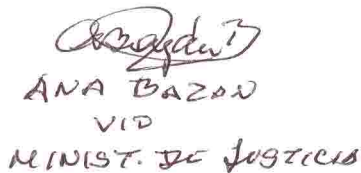 ANA BAZAN
VIO
MINIST. DE JUSTICIA